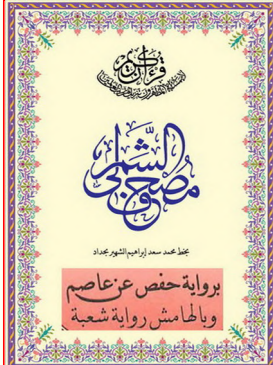 قرآن كريم
مصحف الشمرلي
بخط محمد سعد إبراهيم الشهير بحداد
برواية حفص عن عاصم
وبالهامش رواية شعبة